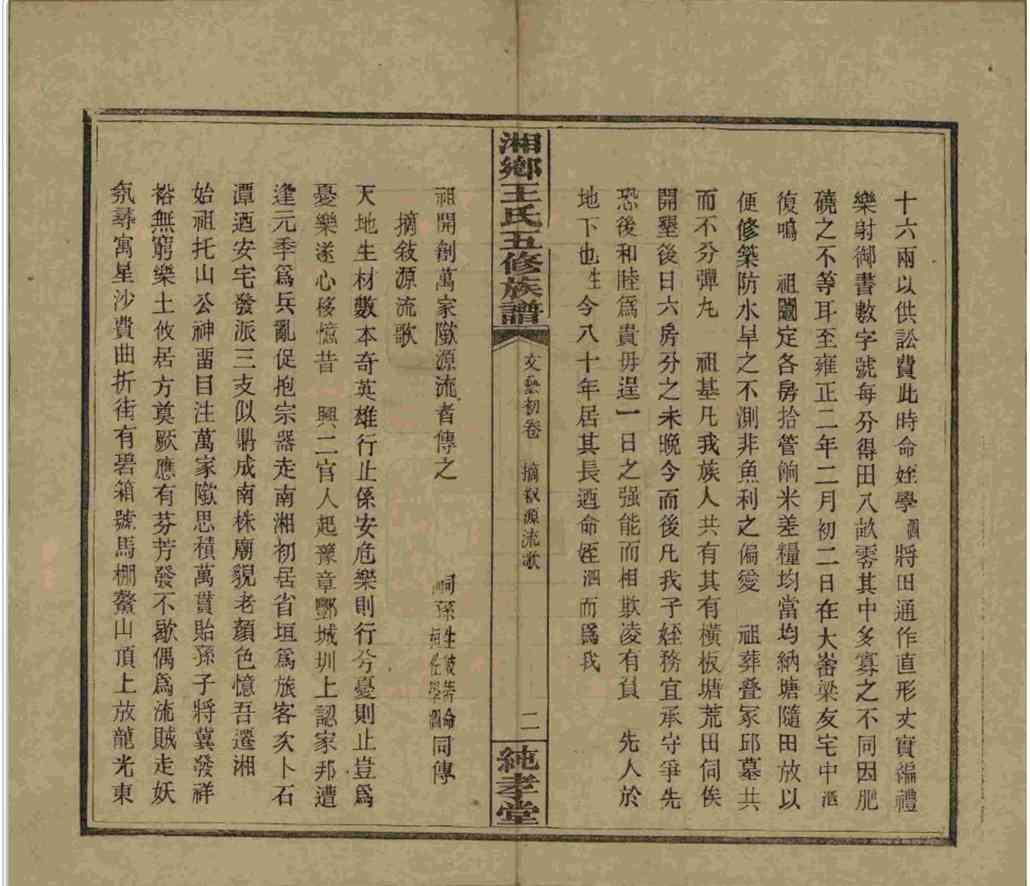 十六兩以供訟費此時命姪學泗將田通作直形丈實編禮
樂射御書數字號每分得田八畝零其中多寡之不同因肥
磽之不等耳至雍正二年二月初二日在大嵛梁友宅中泗
復鳴 祖闔定各房拾管餉米差糧均當均納塘隨田放以
便修築防水旱之不測非魚利之偏愛 祖葬叠冢邱墓共
而不分彈丸 祖基凡我族人共有其有橫板塘荒田伺俟
開墾後日六房分之未晚今而後凡我子姪務宜承守爭先
恐後和睦爲貴毋逞一日之强能而相欺凌有負 先人於
地下也生今八十年居其長迺命姪泗而爲我
湘鄉王氏五修族譜
文藝初卷 摘敍源流歌 二
純孝堂
祖開創萬家隞源流者傳之
摘敍源流歌 嗣孫 同傳
天地生材數本奇英雄行止係安危樂則行兮憂則止豈爲
憂樂遂心移憶昔 興二官人起豫章酆城圳上認家邦遭
逢元季爲兵亂促抱宗器走南湘初居省垣爲旅客亥卜石
潭迺安宅發派三支似鼎成南株廟貌老顏色憶吾遷湘
始祖托山公神畱目注萬家隞思積萬貫貽孫子將冀發祥
裕無窮樂土攸居方奠厥應有芬芳發不歇偶爲流賊走妖
氛尋寓星沙費曲折街有碧箱號馬棚鰲山頂上放龍光東